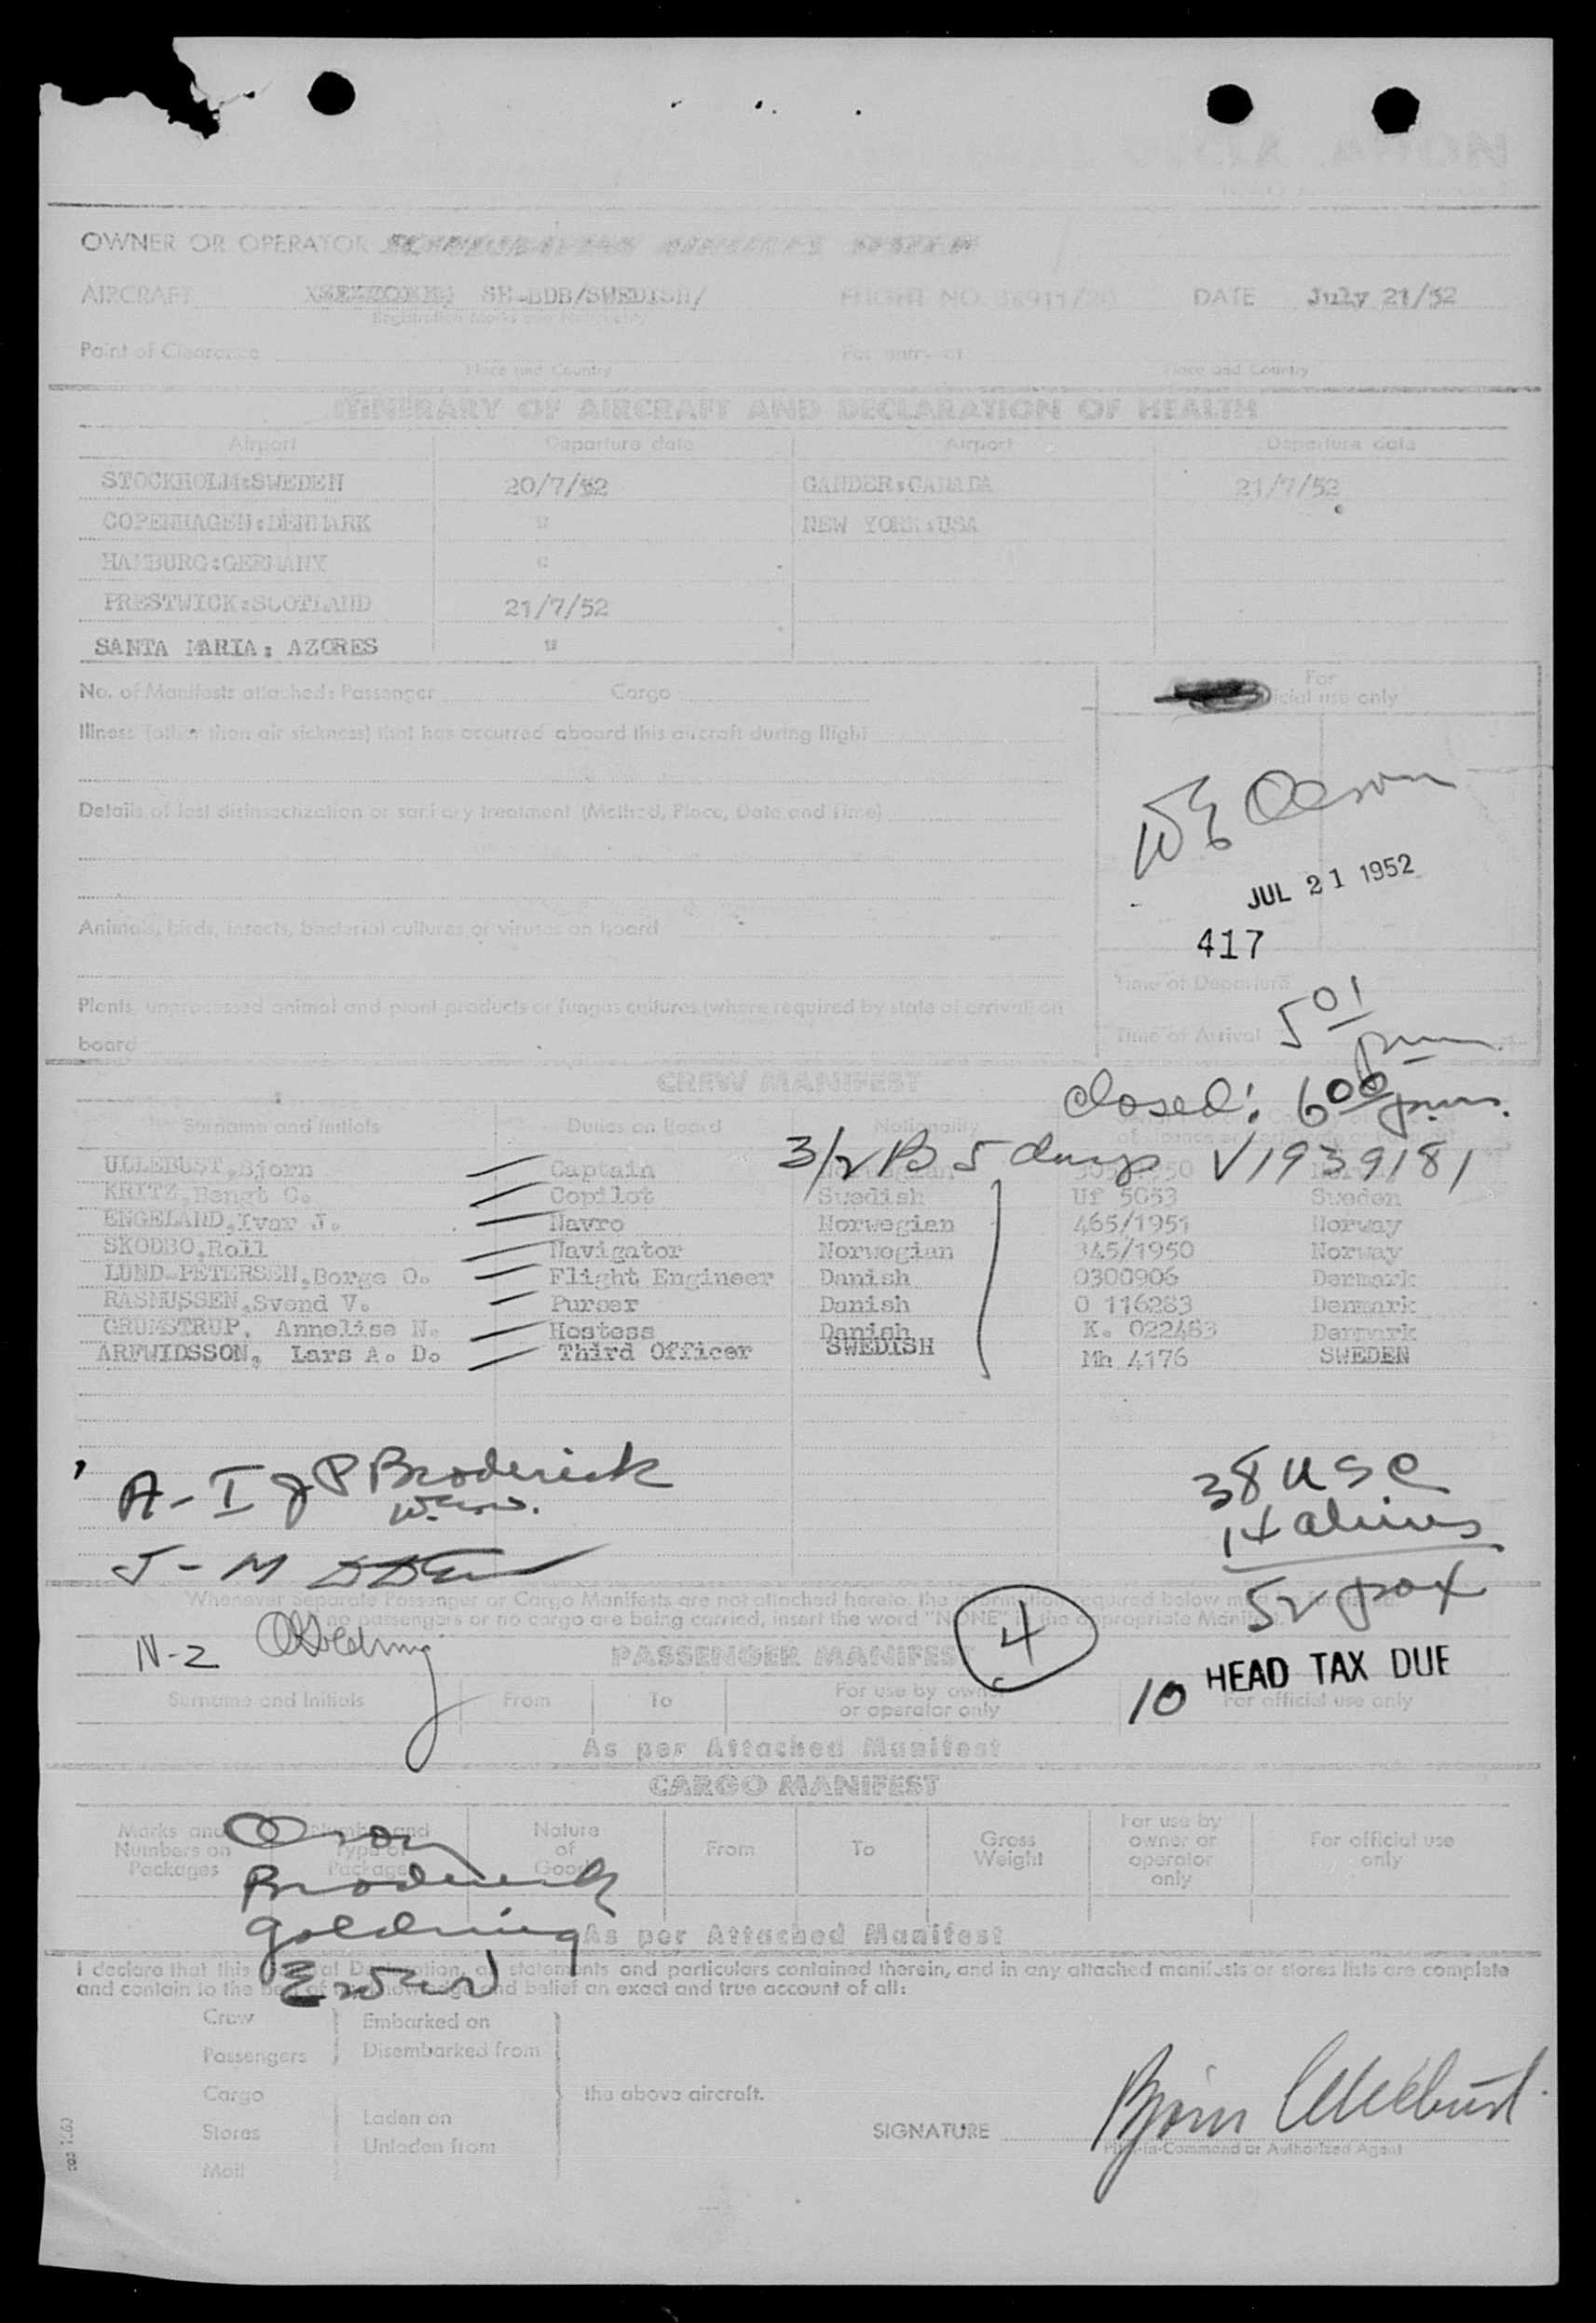 OWNER OR OPERATOR SCANDINAVIAN AIRLINES SYSTEM
AIRCRAFT SE-BDB/SWEDISH/ FLIGHT NO. DATE July 21/52
Registration Marks and Nationality
Point of Clearance For entry at
Place and Country Place and Country
ITINERARY OF AIRCRAFT AND DECLARATION OF HEALTH
Airport Departure date Airport Departure date
STOCKHOLM:SWEDEN 20/7/52 GANDER:CANADA 21/7/52
COPENHAGEN:DENMARK " NEW YORK:USA
HAMBURG:GERMANY "
PRESTWICK:SCOTLAND 21/7/52
SANTA MARIA: AZORES "
No. of Manifests attached: Passenger Cargo
For official use only
Illness (other than air sickness) that has occurred aboard this aircraft during flight
Details of last disinsectization or sanitary treatment (Method, Place, Date and Time)
W E Olson
JUL 21 1952
417
Animals, birds, insects, bacterial cultures or viruses on board
Time of Departure
Plants, unprocessed animal and plant products or fungus cultures (where required by state of arrival) on
board
Time of Arrival 5 01 pm
CREW MANIFEST
closed: 6 00 pm.
Surname and Initials Duties on Board Nationality
3/2 B 5 days V1939181
ULLEBUST,Bjorn Captain
KRITZ,Bengt C. Copilot Swedish Uf 5053 Sweden
ENGELAND,Ivar J. Navro Norwegian 465/1951 Norway
SKODBO,Roll Navigator Norwegian 345/1950 Norway
LUND-PETERSEN,Borge O. Flight Engineer Danish 0300906 Denmark
RASMUSSEN,Svend V. Purser Danish O 116283 Denmark
GRUMSTRUP, Annelise N. Hostess Danish K. 022483 Denmark
ARFWIDSSON, Lars A. D. Third Officer SWEDISH Mh 4176 SWEDEN
A-I J P Broderick
38 USC
14 aliens
J-M
52 pax
Whenever Separate Passenger or Cargo Manifests are not attached hereto, the information required below must be furnished.
If no passengers or no cargo are being carried, insert the word "NONE" in the appropriate Manifest.
4
N-2 Goldring
PASSENGER MANIFEST
10 HEAD TAX DUE
Surname and Initials From To For use by owner or operator only For official use only
As per Attached Manifest
CARGO MANIFEST
Marks and Numbers on Packages Number and Type of Packages Nature of Goods From To Gross Weight For use by owner or operator only For official use only
Olson
Broderick
Goldring
As per Attached Manifest
I declare that this General Declaration, all statements and particulars contained therein, and in any attached manifests or stores lists are complete
and contain to the best of my knowledge and belief an exact and true account of all:
Crew Embarked on
Passengers Disembarked from
Cargo the above aircraft.
Stores Laden on
Mail Unladen from
SIGNATURE Bjorn Ullebust
Pilot-in-Command or Authorized Agent